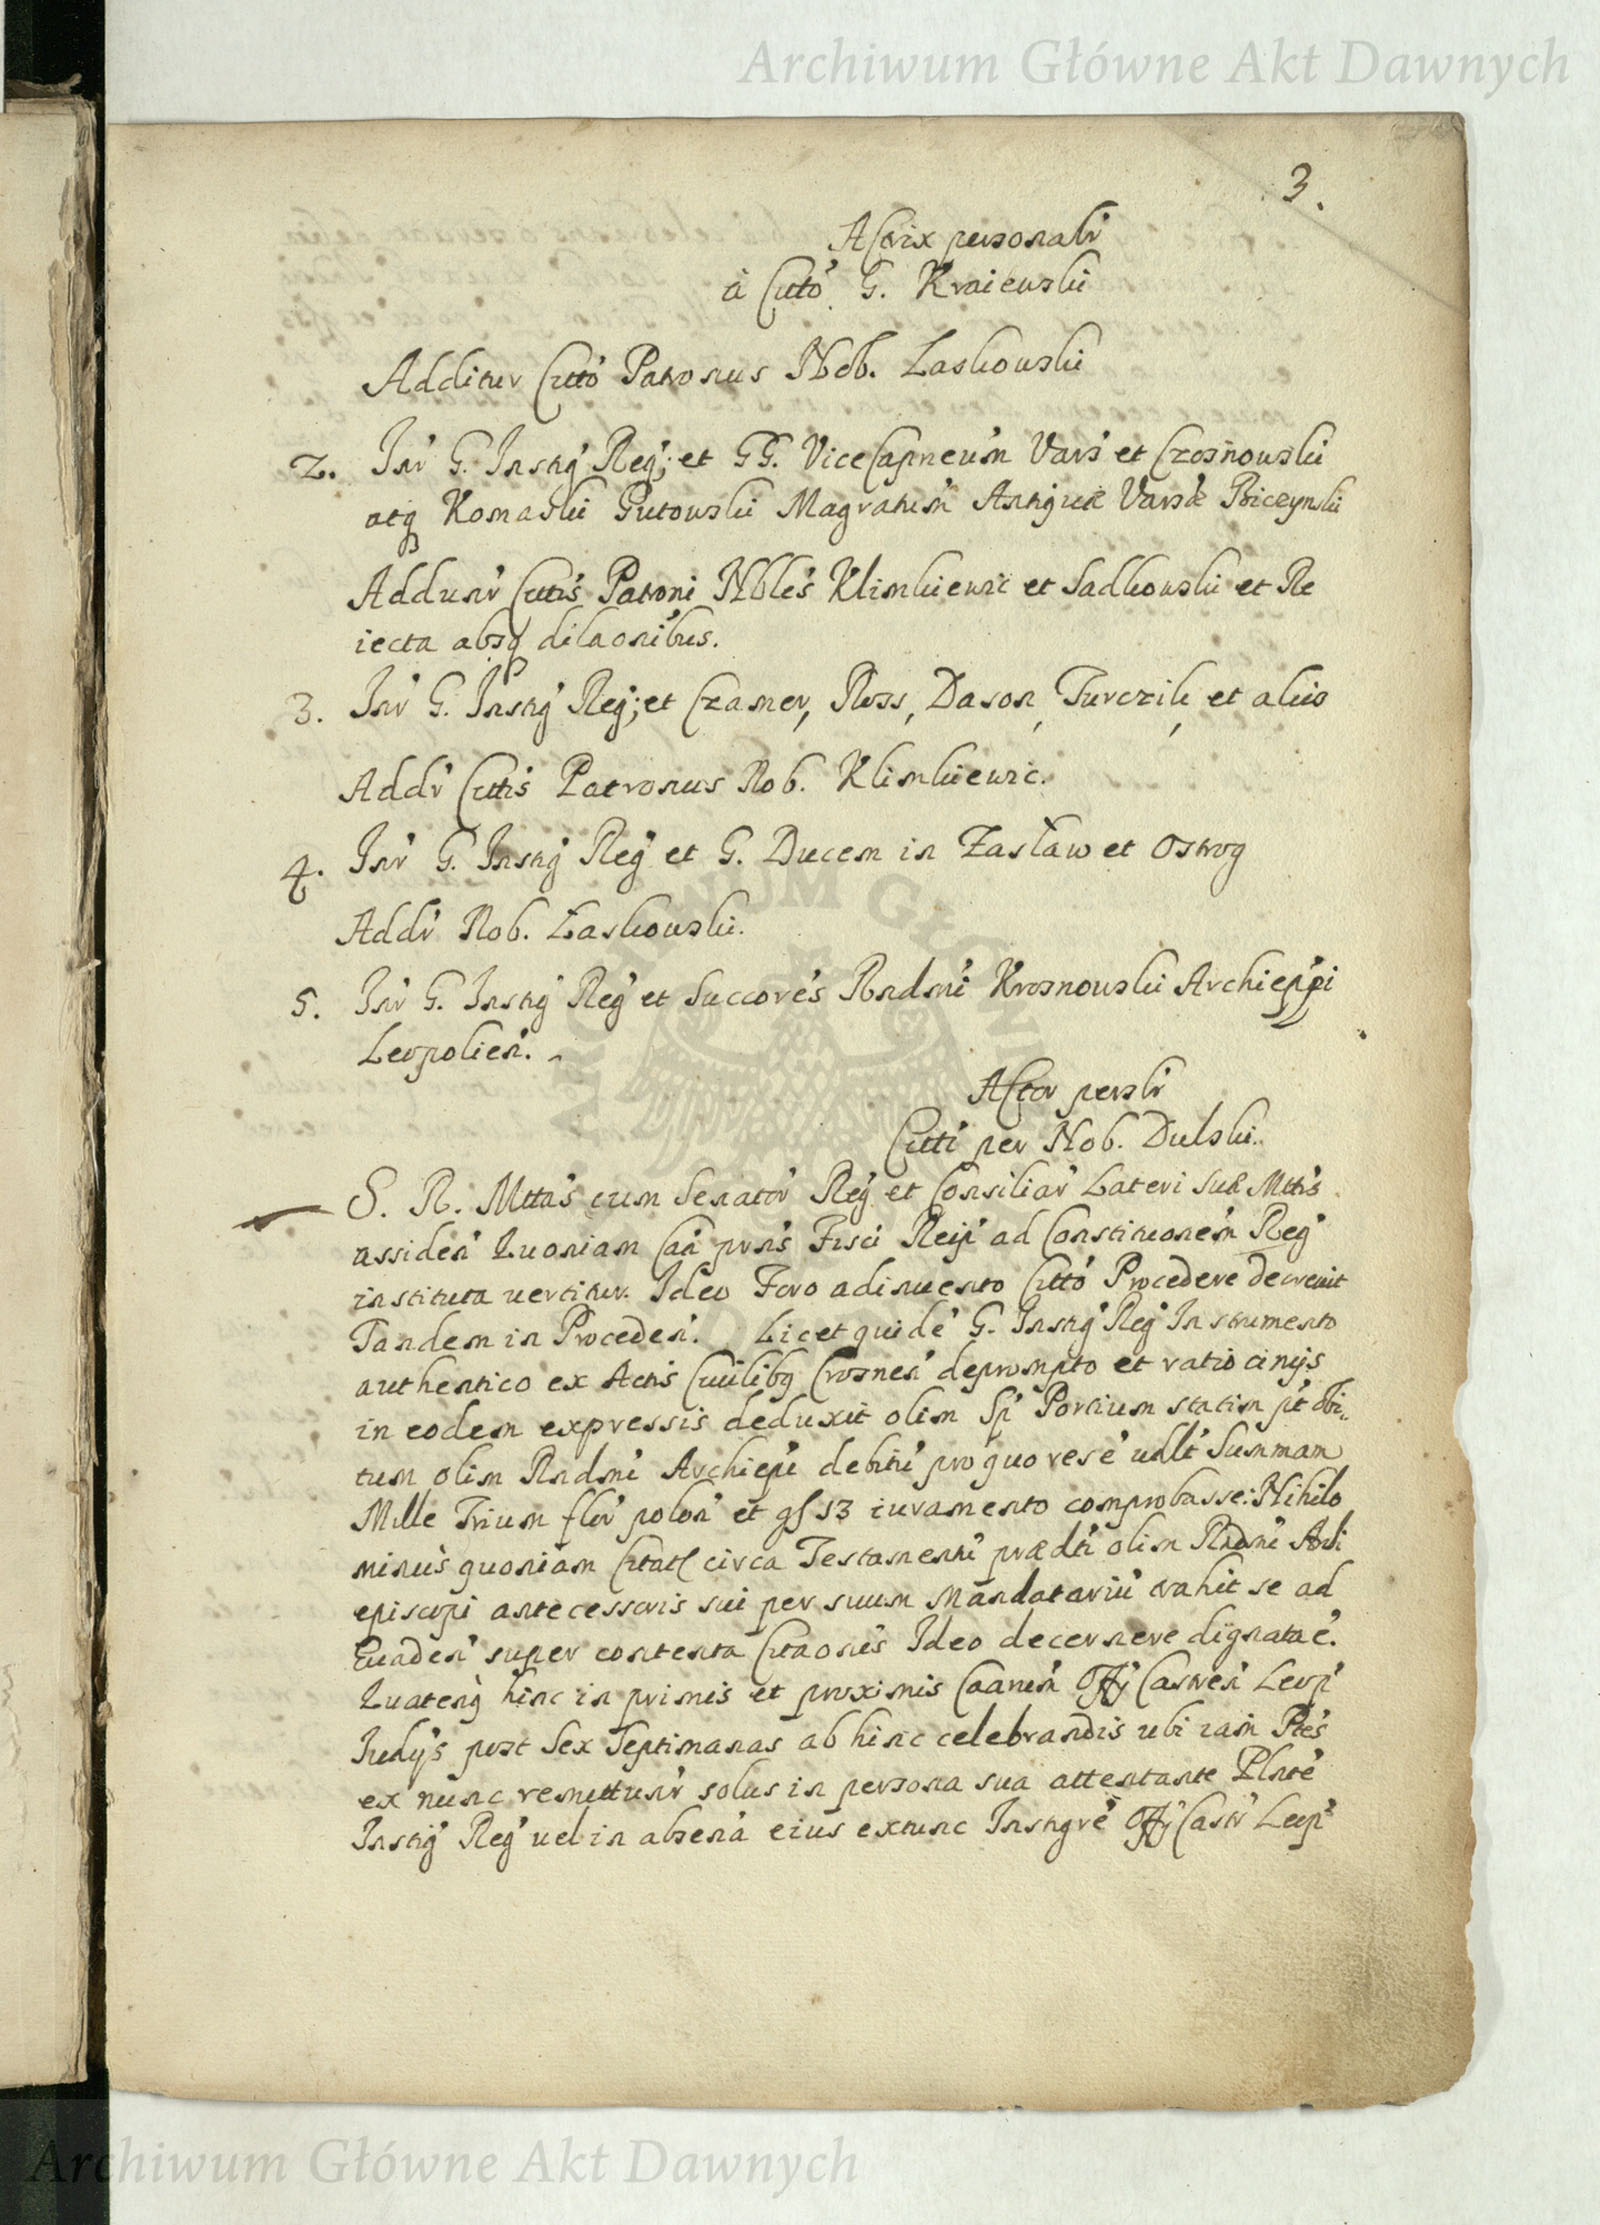 Archiwum Główne Akt Dawnych
3.
Actrix personalr
à Citto G. Kraiewski
Additur Citto Patronus Nob. Laskowski
2. Inr G. Instig Reg; et GG. ViceCapneum Vars et Czosnowski
atq Komaski Gutowski Magratum Antiquæ Varsæ Biczynski
Addunr Cittis Patroni Nbles Klimkiewic et Sadkowski et Re
iecta absq dilaonibus.
3. Inr G. Instig Reg; et Czamer, Ross, Dason, Turczik, et alios
Addr Cittis Patronus Nob. Klimkiewic.
4. Inr G. Instig Reg et G. Ducem in Zasław et Ostrog
Addr Nob. Laskowski.
5. Inr G. Instig Reg et Succores Rndmi Krosnowski Archieppi
Leopolien.
Actor perslr
Citti per Nob. Dulski.
S. R. Mttas cum Senator Reg et Consiliar Lateri Suæ Mttis
assiden Quoniam Caa prns Fisci Reip ad Constituonem Reg
instituta vertitur. Ideo Foro adinuento Citto Procedere decreuit
Tandem in Proceden. Licet quide G. Instig Reg Instrumento
authentico ex Actis Ciuilibq Crosnen deprompto et ratiocinijs
in eodem expressis deduxit olim Sp Porcium statim pt Obi
tum olim Rndmi Archiepi debiti pro quo rese uallt Summam
Mille Trium flor polon et gs 13 iuramento comprobasse: Nihilo
minus quoniam Citat circa Testamenti prædti olim Rndmi Archi
episcopi antecessoris sui per suum Mandatariu trahit se ad
Euaden super contenta Citaonis Ideo decernere dignata e.
Quatenq hinc in primis et proximis Caarum Offij Castren Leop
Iudijs post Sex Septimanas ab hinc celebrandis ubi iam Ptes
ex nunc remittunr solus in persona sua attentante Plnte
Instig Reg uel in absena eius extunc Instigre Offij Castr Leop
Archiwum Główne Akt Dawnych